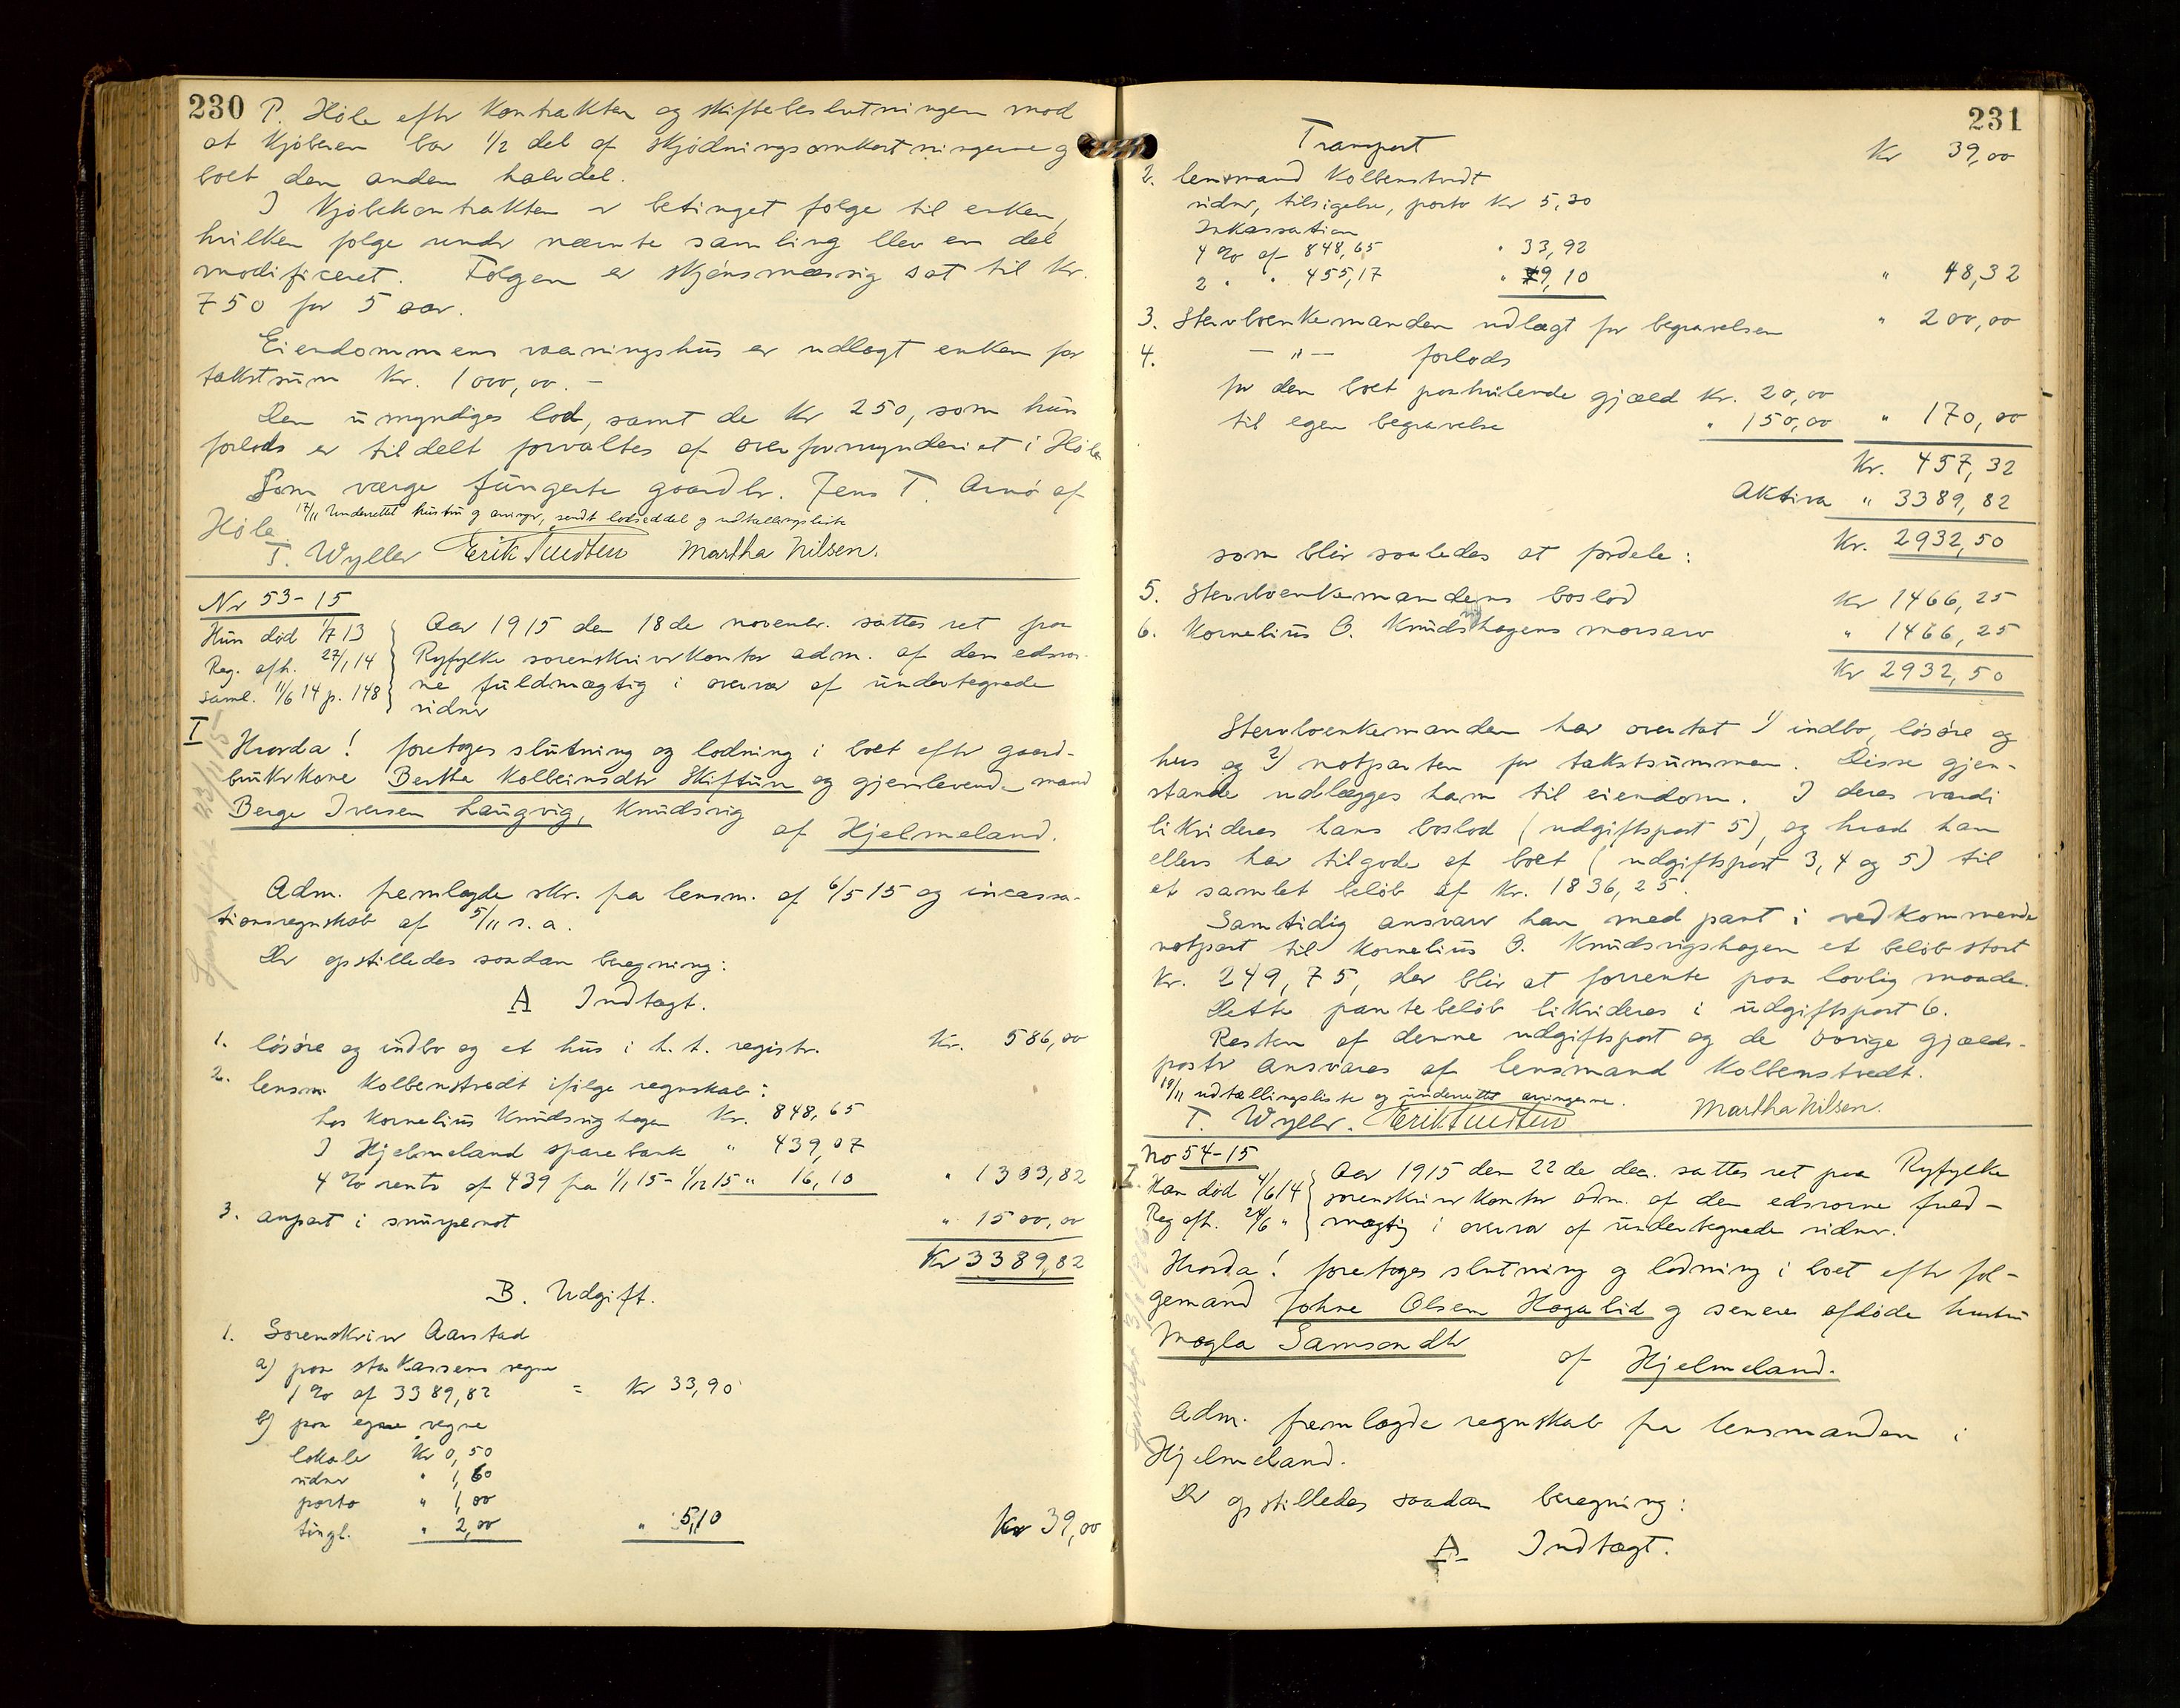 230
P. Høle eftr Kontrakten og skiftebeslutningen mod
at Kjøberen bær 1/2 del af skjødningsomkostningerne og
boet den anden halvdel.
I Kjøbekontrakten er betinget følge til enken,
hvilken følge under nævnte samling blev en del
modificeret. Følgen er skjønsmæssig sat til Kr.
750 for 5 aar.
Eiendommens vaaningshus er udlagt enken for
takstsum Kr. 1000,00. -
Den umyndiges lod, samt de Kr 250, som hun
forlods er tildelt forvaltes af overformynderiet i Høle
Som værge fungerte gaardbr. Jens T. Arnø af
Høle.
17/11 Underrettet hustru og arvinger, sendt lodseddel og udtællingsliste
T. Wyller Erik Tuedten Martha Nilsen.
Nr 53-15
Hun død 1/7 13
Reg. afh. 27/1 14
Saml. 11/6 14 p. 148
Aar 1915 den 18de novenbr. sattes ret paa
Ryfylke sorenskriverkontor adm. af den edsvor-
ne fuldmægtig i overvær af undertegnede
vidner
I
Hvorda! foretoges slutning og lodning i boet eftr gaard-
brukrkone Bertha Kolbeinsdtr Skiftun og gjenlevende mand
Berge Iversen Laugvig, Knudsvig
af Hjelmeland.
Adm. fremlagde skr. fra lensm. af 6/5 15 og incassa-
tionsregnskab af 5/11 s. a.
Der opstilledes saadan beregning:
A Indtægt.
1. løsøre og indbo og et hus i h. t. registr. Kr. 586,00
2. lensm. Kolbenstvedt ifølge regnskab:
hos Kornelius Knudsvighagen Kr. 848,65
I Hjelmeland sparebank " 439,07
4 % rente af 439 fra 1/1 15 - 1/12 15 " 16,10 " 1303,82
3. anpart i snurpenot " 1500,00
Kr 3389,82
B. Udgift.
1. Sorenskriver Aarstad
a) paa statskassens vegne
1 % af 3389,82 = Kr 33,90
b) paa egne vegne
lokale Kr 0,50
vidner " 1,60
porto " 1,00
tingl. " 2,00 " 5,10 Kr 39,00
231
Transport Kr 39,00
2. lensmand Kolbenstvedt
vidner, tilsigelse, porto Kr 5,30
Inkassation
4 % af 848,65 " 33,92
2 " " 455,17 " 9,10 " 48,32
3. Stervboenkemanden udlagt for begravelsen " 200,00
4. — " — forlods
for den boet paahvilende gjæld Kr. 20,00
til egen begravelse " 150,00 " 170,00
Kr. 457,32
Aktiva " 3389,82
som blir saaledes at fordele: Kr. 2932,50
5. Stervboenkemandens boslod Kr 1466,25
6. Kornelius B. Knudsvighagens morsarv " 1466,25
Kr 2932,50
Stervboenkemanden har overtat 1) indbo, løsøre og
hus og 2) notparten for takstsummen. Disse gjen-
stande udlægges ham til eiendom. I deres værdi
likvideres hans boslod (udgiftspost 5), og hvad han
ellers har tilgode af boet (udgiftspost 3, 4 og 5) til
et samlet beløb af Kr. 1836,25.
Samtidig ansvarer han med pant i vedkommende
notpart til Kornelius B. Knudsvigshagen et beløb stort
Kr. 249,75, der blir at forrente paa lovlig maade.
Dette pantebeløb likvideres i udgiftspost 6.
Resten af denne udgiftspost og de øvrige gjælds-
poster ansvares af lensmand Kolbenstvedt.
19/11 udtællingsliste og underrettet arvingerne.
T. Wyller. Erik Tuedten Martha Nilsen.
No 54-15
I.
Han død 4/6 14
Reg afh. 24/6 "
Aar 1915 den 22de des. sattes ret paa Ryfylke
sorenskriverkontor adm. af den edsvorne fuld-
mægtig i overvær af undertegnede vidner.
Hvorda! foretoges slutning og lodning i boet eftr føl-
gemand Johne Olsen Hagalid og senere afdøde hustru
Magla Samsondtr
af Hjelmeland.
Adm. fremlagde regnskab fra lensmanden i
Hjelmeland.
Der opstilledes saadan beregning:
A Indtægt.